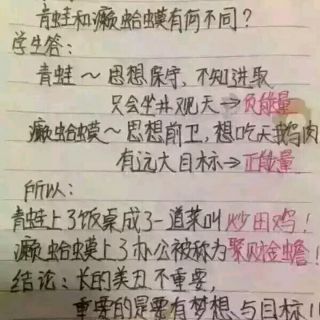 青蛙和癞蛤蟆有何不同?
学生答:
青蛙~思想保守,不知进取
只会坐井观天→负能量
癞蛤蟆~思想前卫,想吃天鹅肉
有远大目标→正能量
所以:
青蛙上了饭桌成了一道菜叫炒田鸡!
癞蛤蟆上了办公被称为聚财金蟾!
结论:长的美丑不重要,
重要的是要有梦想、与目标!!